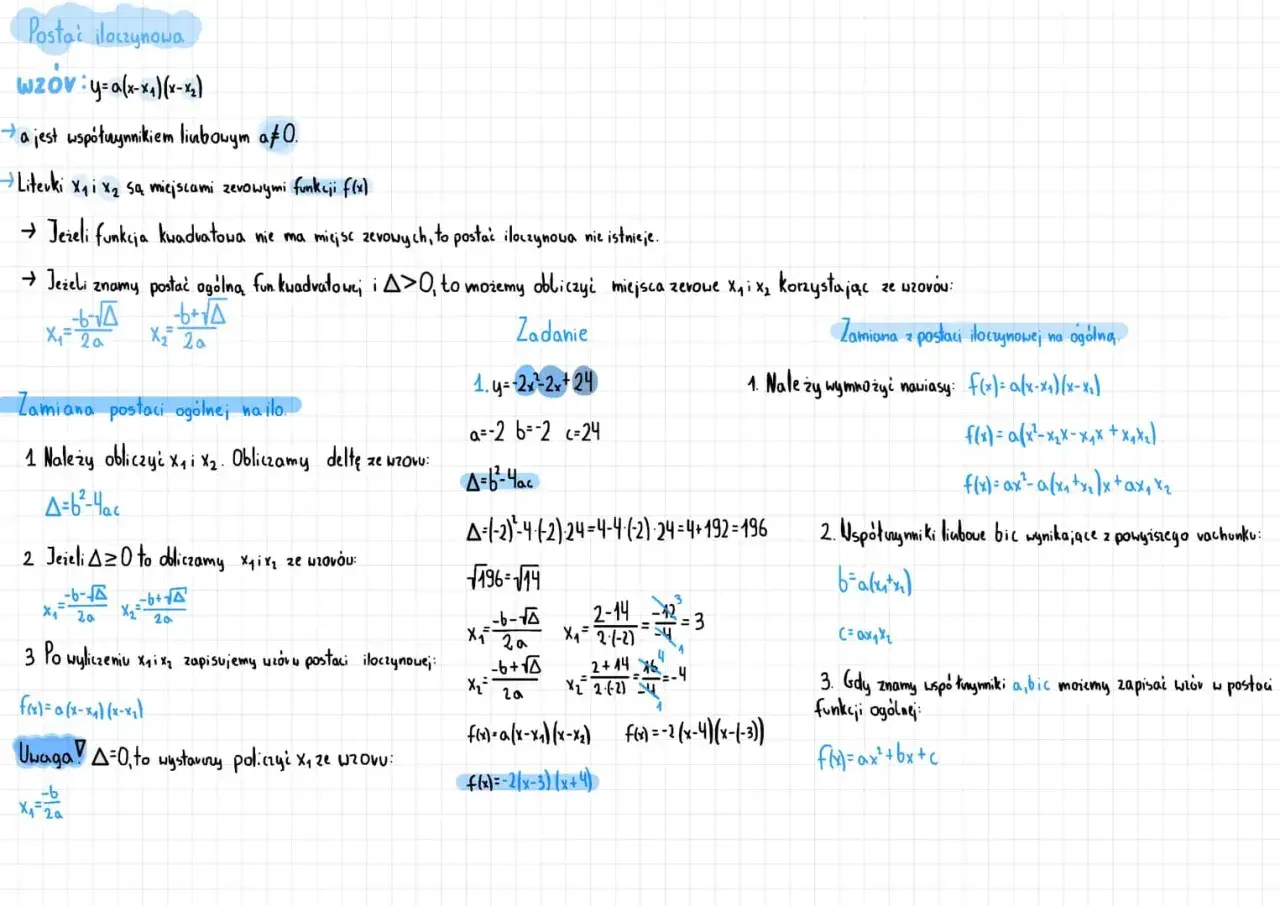 Postać iloczynowa
wzór: y=a(x-x₁)(x-x₂)
→ a jest współczynnikiem liczbowym a≠0.
→ Literki x₁ i x₂ są miejscami zerowymi funkcji f(x)
→ Jeżeli funkcja kwadratowa nie ma miejsc zerowych, to postać iloczynowa nie istnieje.
→ Jeżeli znamy postać ogólną fun. kwadratowej i Δ>0, to możemy obliczyć miejsca zerowe x₁ i x₂ korzystając ze wzorów:
x₁=(-b-√Δ)/2a x₂=(-b+√Δ)/2a
Zamiana postaci ogólnej na ilo.
1 Należy obliczyć x₁ i x₂. Obliczamy deltę ze wzoru:
Δ=b²-4ac
2 Jeżeli Δ≥0 to obliczamy x₁ i x₂ ze wzorów:
x₁=(-b-√Δ)/2a x₂=(-b+√Δ)/2a
3 Po wyliczeniu x₁ i x₂ zapisujemy wzór w postaci iloczynowej:
f(x)=a(x-x₁)(x-x₂)
Uwaga! Δ=0, to wystarczy policzyć x₁ ze wzoru:
x₁=-b/2a
Zadanie
1. y=-2x²-2x+24
a=-2 b=-2 c=24
Δ=b²-4ac
Δ=(-2)²-4·(-2)·24=4-4·(-2)·24=4+192=196
√196=√14
x₁=(-b-√Δ)/2a x₁=(2-14)/(2·(-2))=-12/-4=3
x₂=(-b+√Δ)/2a x₂=(2+14)/(2·(-2))=16/-4=-4
f(x)=a(x-x₁)(x-x₂) f(x)=-2(x-4)(x-(-3))
f(x)=-2(x-3)(x+4)
Zamiana z postaci iloczynowej na ogólną.
1. Należy wymnożyć nawiasy: f(x)=a(x-x₁)(x-x₂)
f(x)=a(x²-x₂x-x₁x+x₁x₂)
f(x)=ax²-a(x₁+x₂)x+ax₁x₂
2. Współczynniki liczbowe b i c wynikające z powyższego rachunku:
b=a(x₁+x₂)
c=ax₁x₂
3. Gdy znamy współczynniki a, b i c możemy zapisać wzór w postaci
funkcji ogólnej:
f(x)=ax²+bx+c